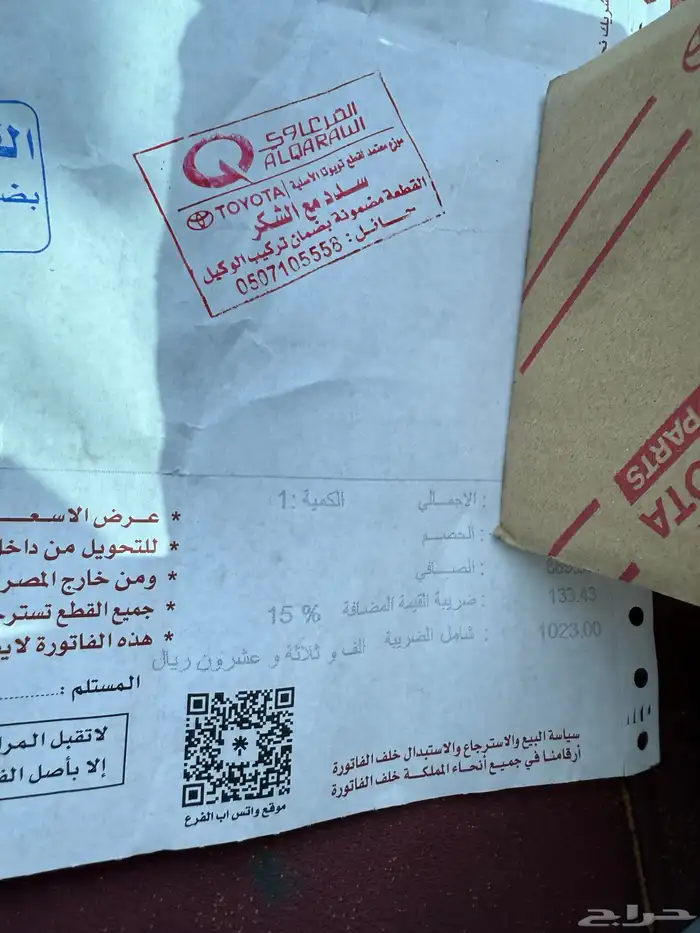 القرعاوي
ALQARAWI
موزع معتمد لقطع تويوتا الأصلية | TOYOTA
سدد مع الشكر
القطعة مضمونة بضمان تركيب الوكيل
حائل : 0507105558
: الاجمالي الكمية :1
: الخصم
: الصافي
: ضريبة القيمة المضافة 15 % 133.43
: شامل الضريبة الف و ثلاثة و عشرون ريال 1023.00
* عرض الاسعـ
* للتحويل من داخل
* ومن خارج المصر
* جميع القطع تسترجـ
* هذه الفاتورة لا
المستلم :
لا تقبل المر
إلا بأصل الفـ
موقع واتس اب الفرع
سياسة البيع والاسترجاع والاستبدال خلف الفاتورة
أرقامنا في جميع أنحاء المملكة خلف الفاتورة
PARTS
OTA
حراج